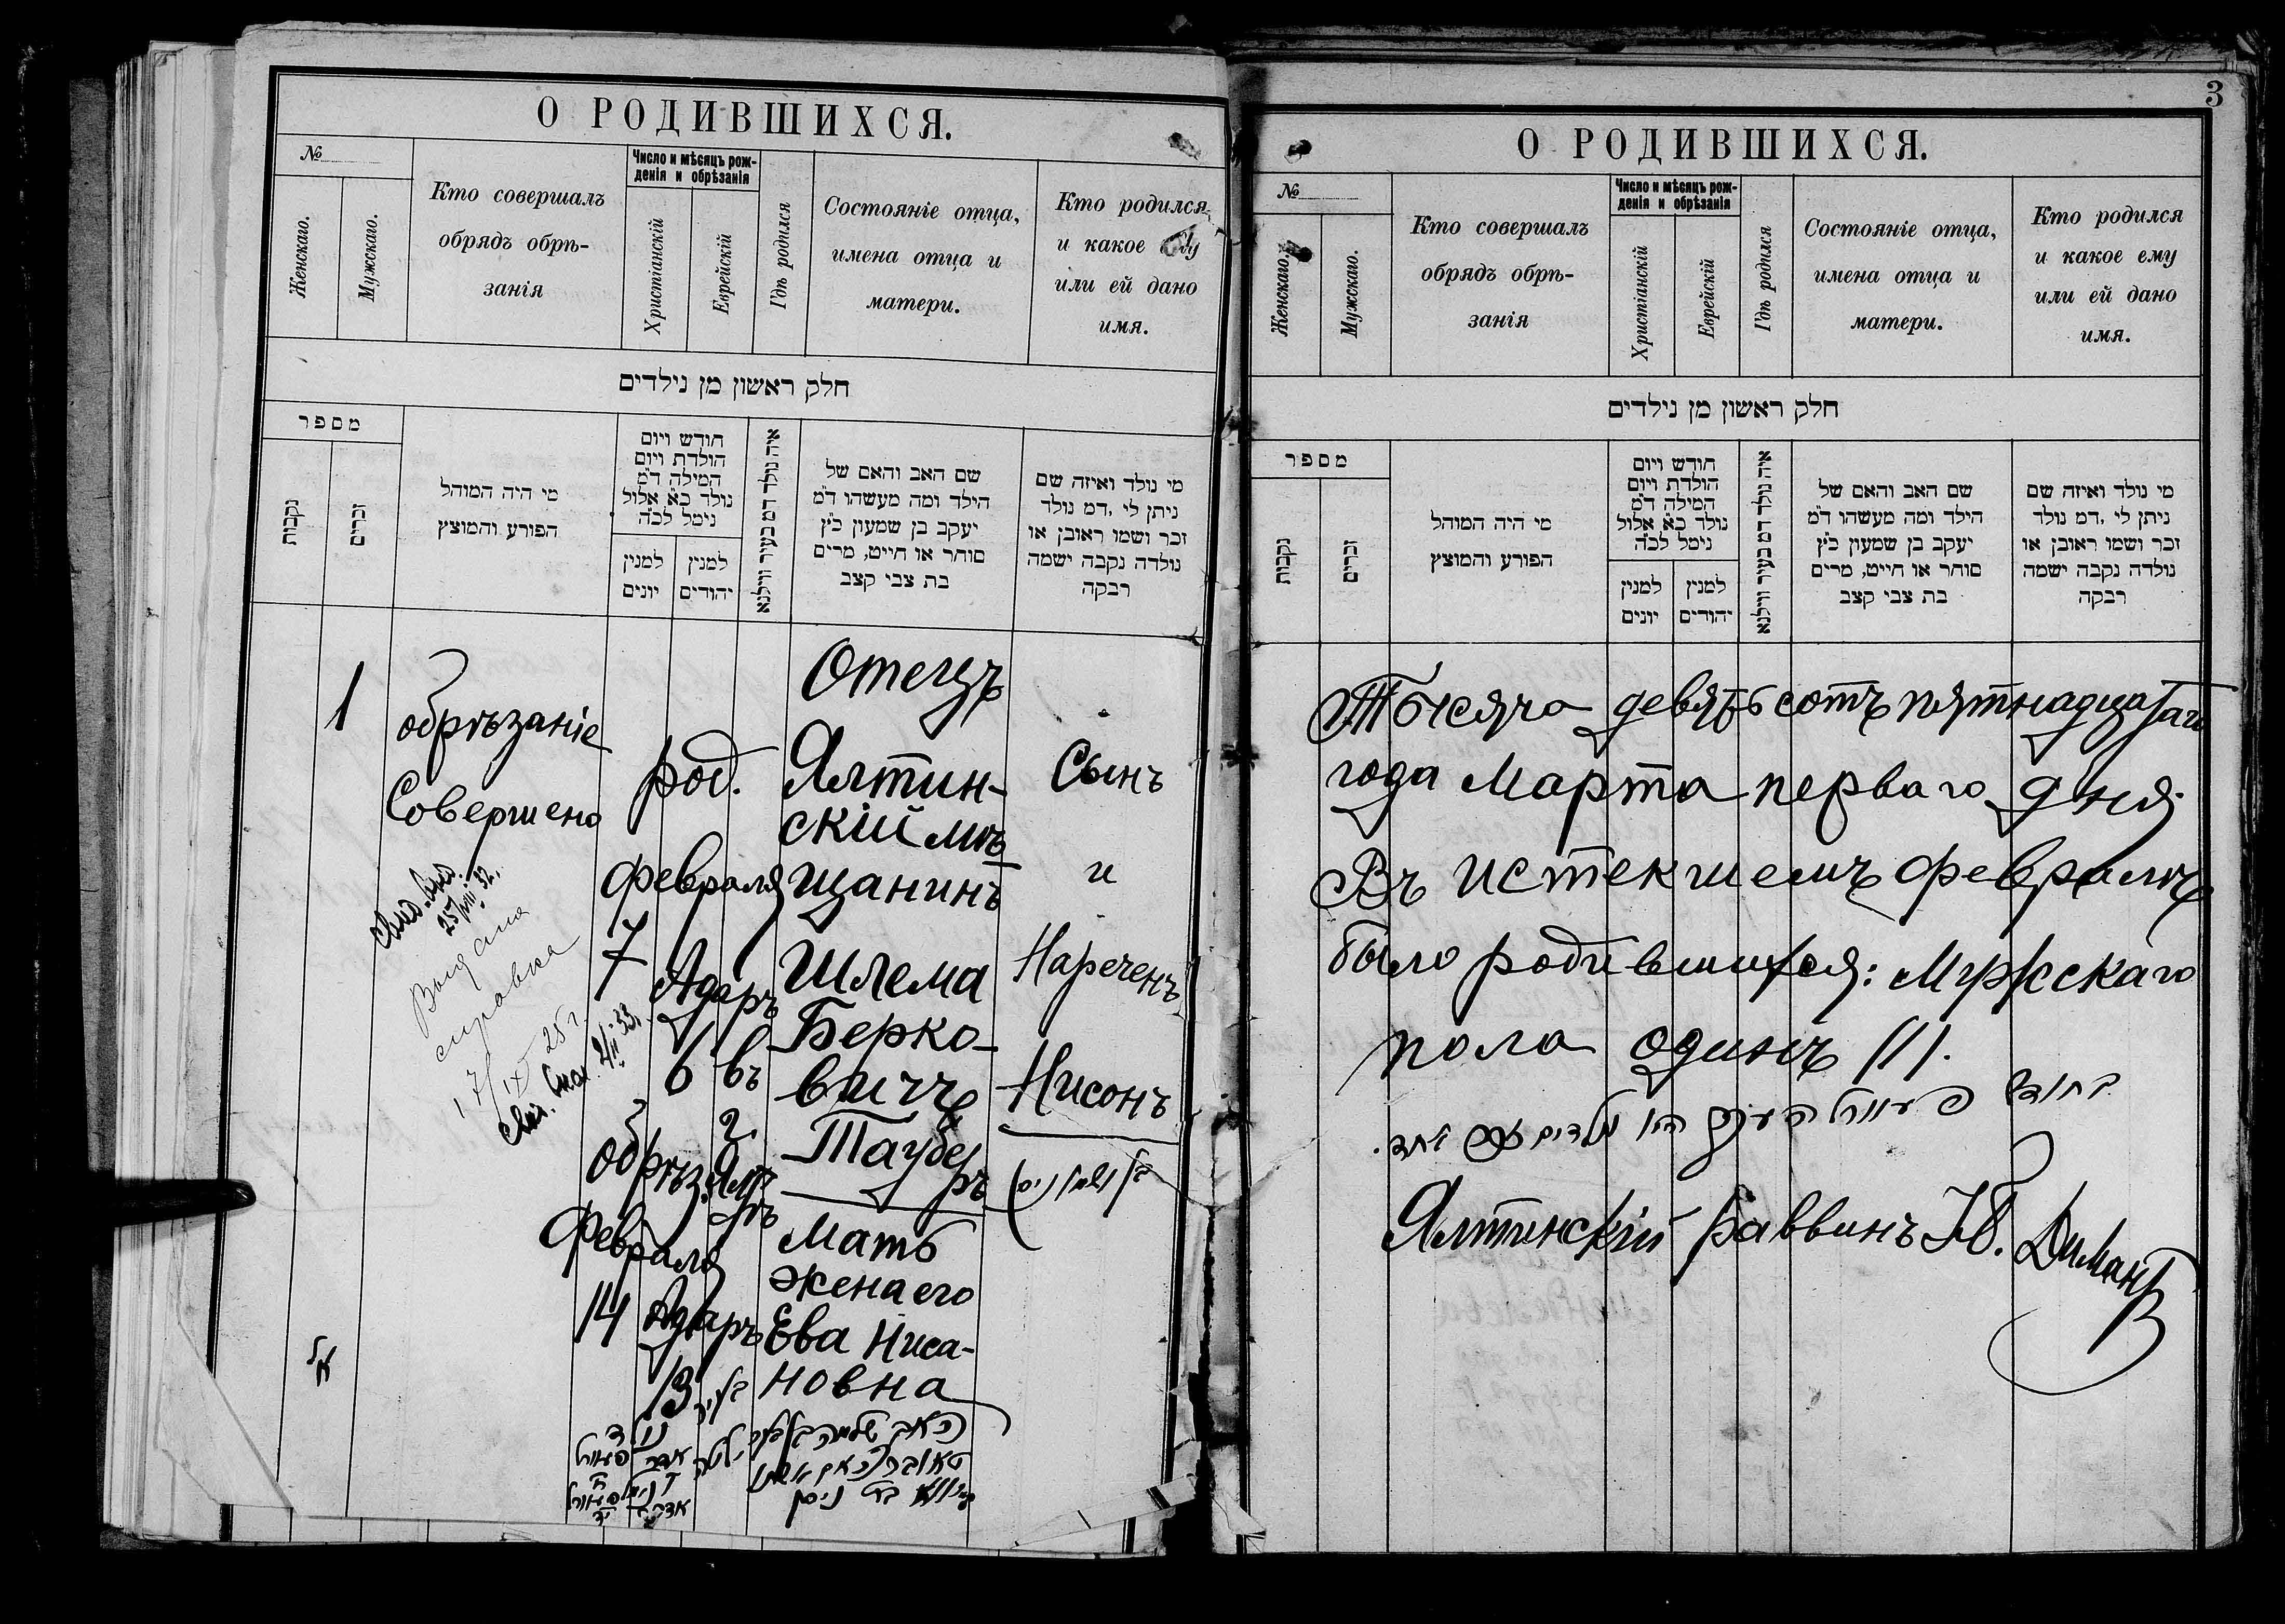 О РОДИВШИХСЯ.
№
Женскаго.
Мужскаго.
Кто совершалъ
обрядъ обрѣ-
занія
Число и мѣсяцъ рож-
денія и обрѣзанія
Христіанскій
Еврейскій
Гдѣ родился
Состояніе отца,
имена отца и
матери.
Кто родился
и какое ему
или ей дано
имя.
חלק ראשון מן נילדים
מספר
נקבות
זכרים
מי היה המוהל
הפורע והמוצץ
חודש ויום
הולדת ויום
המילה ד״מ
נולד כ״א אלול
נימל לכ״ה
למנין
יונים
למנין
יהודים
איה נולד דמ בעיר ווילנא
שם האב והאם של
הילד ומה מעשהו ד״מ
יעקב בן שמעון כ״ץ
סוחר או חייט, מרים
בת צבי קצב
מי נולד ואיזה שם
ניתן לי, דמ נולד
זכר ושמו ראובן או
נולדה נקבה ישמה
רבקה
1
обрѣзаніе
Совершено
Выдана
справка
род.
Февраля
7
Адаръ
6
въ
г.
Ялтѣ
обрѣз.
Февраля
14
Адаръ
13
Отецъ
Ялтин-
скій мѣ-
щанинъ
Шлема
Берко-
вичъ
Тауберъ
Мать
жена его
Ева Ниса-
новна
Сынъ
и
Нареченъ
Нисонъ
3
О РОДИВШИХСЯ.
№
Женскаго.
Мужскаго.
Кто совершалъ
обрядъ обрѣ-
занія
Число и мѣсяцъ рож-
денія и обрѣзанія
Христіанскій
Еврейскій
Гдѣ родился
Состояніе отца,
имена отца и
матери.
Кто родился
и какое ему
или ей дано
имя.
חלק ראשון מן נילדים
מספר
נקבות
זכרים
מי היה המוהל
הפורע והמוצץ
חודש ויום
הולדת ויום
המילה ד״מ
נולד כ״א אלול
נימל לכ״ה
למנין
יונים
למנין
יהודים
איה נולד דמ בעיר ווילנא
שם האב והאם של
הילד ומה מעשהו ד״מ
יעקב בן שמעון כ״ץ
סוחר או חייט, מרים
בת צבי קצב
מי נולד ואיזה שם
ניתן לי, דמ נולד
זכר ושמו ראובן או
נולדה נקבה ישמה
רבקה
Тысяча девятьсотъ пятнадцатаго
года Марта перваго дня.
Въ истекшемъ Февралѣ
было родившихся: Мужскаго
пола одинъ /1/.
Ялтинскій Раввинъ Ю. Димантъ